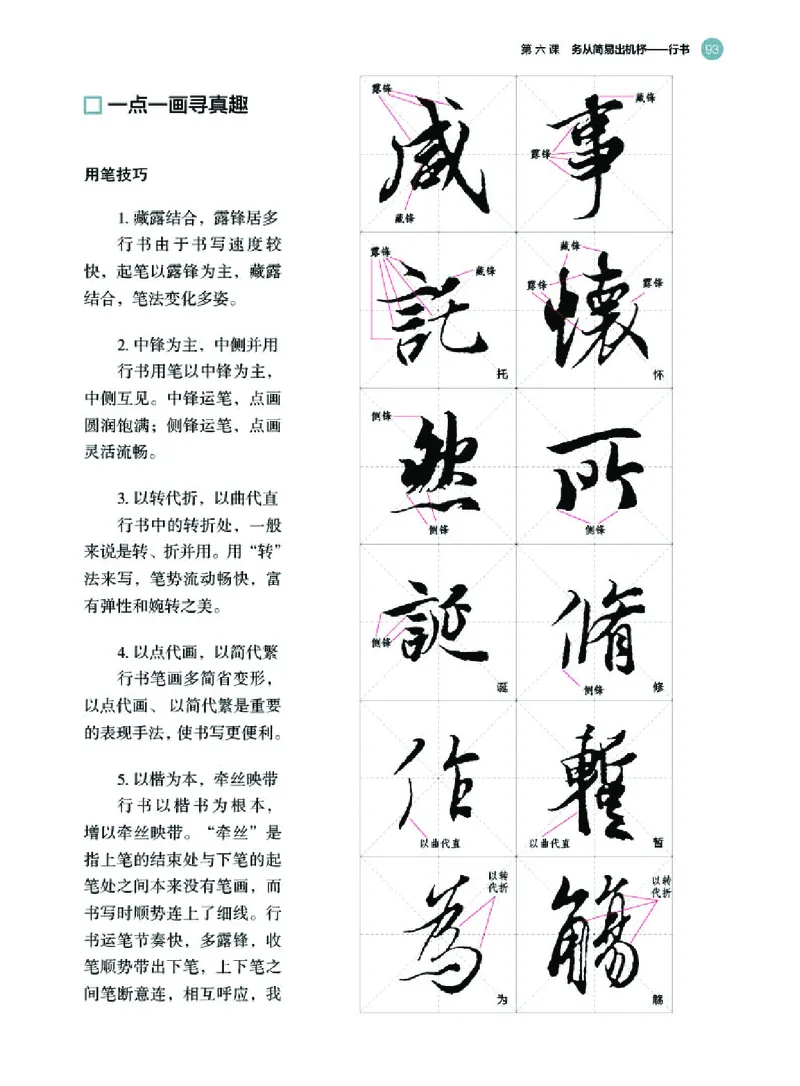 第六课 务从简易出机杼——行书 93
一点一画寻真趣
用笔技巧
1. 藏露结合，露锋居多
行书由于书写速度较
快，起笔以露锋为主，藏露
结合，笔法变化多姿。
2. 中锋为主，中侧并用
行书用笔以中锋为主，
中侧互见。中锋运笔，点画
圆润饱满；侧锋运笔，点画
灵活流畅。
3. 以转代折，以曲代直
行书中的转折处，一般
来说是转、折并用。用“转”
法来写，笔势流动畅快，富
有弹性和婉转之美。
4. 以点代画，以简代繁
行书笔画多简省变形，
以点代画、以简代繁是重要
的表现手法，使书写更便利。
5. 以楷为本，牵丝映带
行书以楷书为根本，
增以牵丝映带。“牵丝”是
指上笔的结束处与下笔的起
笔处之间本来没有笔画，而
书写时顺势连上了细线。行
书运笔节奏快，多露锋，收
笔顺势带出下笔，上下笔之
间笔断意连，相互呼应，我
露锋
咸
藏锋
藏锋
事
露锋
露锋
託
藏锋
托
藏锋
露锋
懷
露锋
怀
侧锋
然
侧锋
所
侧锋
誕
侧锋
诞
脩
侧锋
修
作
以曲代直
暫
以曲代直
暂
以转
代折
為
为
以转
代折
觴
觞